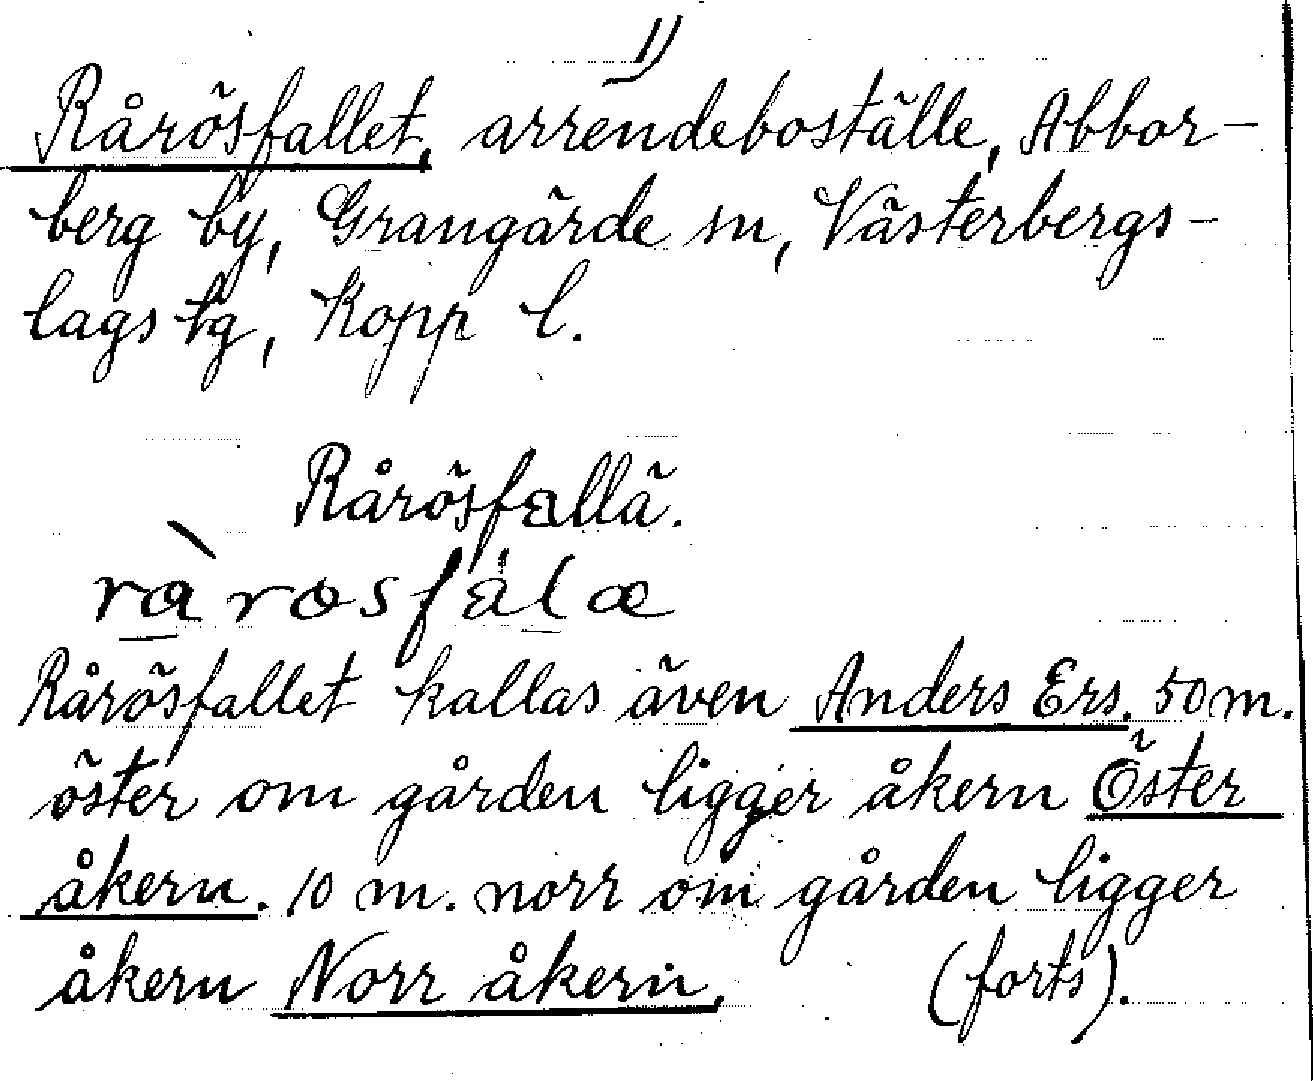 1)
Rårösfallet, arrendeboställe, Abbor-
berg by, Grangärde sn, Västerbergs-
lags tg, Kopp l.
Rårösfallä.
rà̱rosfálæ
Rårösfallet kallas även Anders Ers. 50 m.
öster om gården ligger åkern Öster
åkern. 10 m. norr om gården ligger
åkern Norr åkern. (forts).